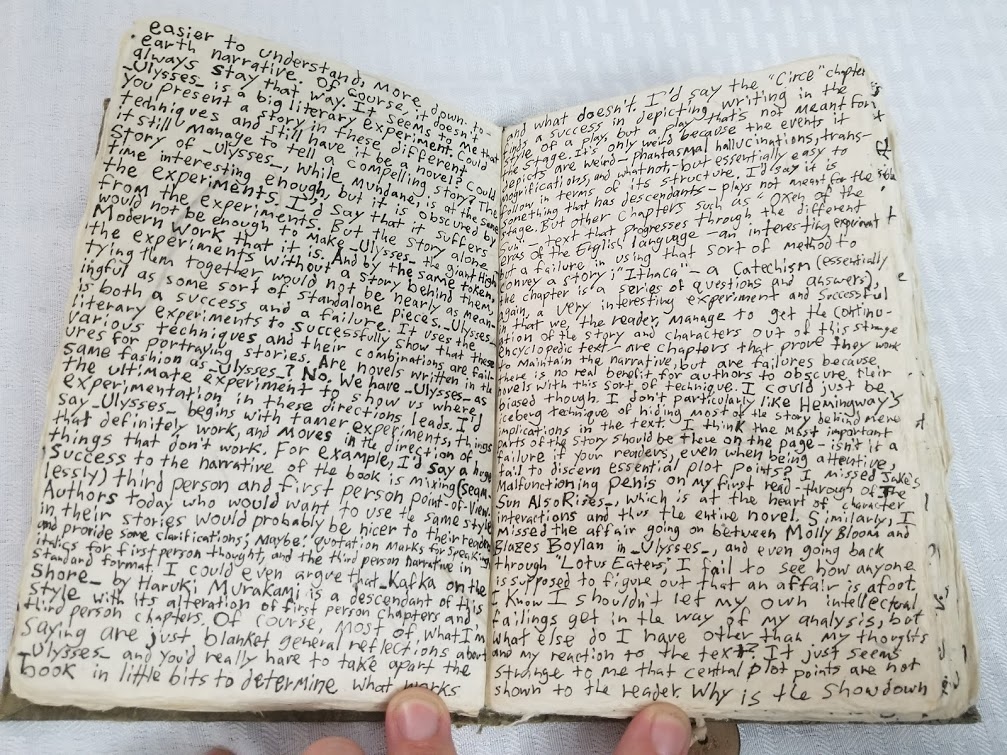 easier to understand, more down-to-
earth narrative. Of course, it doesn't
always stay that way. It seems to me that
_Ulysses_ is a big literary experiment. Could
you present a story in these different
techniques and still have it be a novel? Could
it still manage to tell a compelling story? The
story of _Ulysses_, while mundane, is at the same
time interesting enough, but it is obscured by
the experiments. I'd say that it suffers
from the experiments. But the story alone
would not be enough to make _Ulysses_ the giant High
Modern work that it is. And by the same token,
the experiments without a story behind them,
tying them together would not be nearly as mean-
ingful as some sort of standalone pieces. _Ulysses_
is both a success and a failure. It uses the
literary experiments to successfully show that these
various techniques and their combination are fail-
ures for portraying stories. Are novels written in the
same fashion as _Ulysses_? No. We have _Ulysses_ as
the ultimate experiment to show us where
experimentation in these directions leads. I'd
say _Ulysses_ begins with tamer experiments, things
that definitely work, and moves in the direction of
things that don't work. For example, I'd say a huge
success to the narrative of the book is mixing (seam-
lessly) third person and first person point-of-view.
Authors today who would want to use the same style
in their stories would probably be nicer to their readers
and provide some clarifications; Maybe: quotation marks for speaking
italics for first person thought, and the third person narrative in
standard format. I could even argue that _Kafka on the
Shore_ by Haruki Murakami is a descendant of this
style with its alteration of first person chapters and
third person chapters. Of course, most of what I'm
saying are just blanket general reflections about
_Ulysses_ and you'd really have to take apart the
book in little bits to determine what works
and what doesn't. I'd say the "Circe" chapter
finds a success in depicting writing in the
style of a play, but a play that's not meant for
the stage. It's only weird because the events it
depicts are weird - phantasmal hallucinations, trans-
mogrifications, and whatnot - but essentially easy to
follow in terms of its structure. I'd say it is
something that has descendants - plays not meant for the
stage. But other chapters such as "Oxen of the
Sun", a text that progresses through the different
of the English language - an interesting experiment
but a failure in using that sort of method to
convey a story; "Ithaca" - a Catechism (essentially
the chapter is a series of questions and answers),
again, a very interesting experiment and successful
in that we, the reader, manage to get the continu-
ation of the story and characters out of this strange
encyclopedic text - are chapters that prove they work
to maintain the narrative, but are failures because
there is no real benefit for authors to obscure their
novels with this sort of technique. I could just be
biased though. I don't particularly like Hemingway's
iceberg technique of hiding most of the story behind mere
implications in the text. I think the most important
parts of the story should be there on the page - isn't it a
failure if your readers, even when being attentive,
fail to discern essential plot points? I missed Jake's
malfunctioning penis on my first read-through of _The
Sun Also Rises_, which is at the heart of character
interactions and thus the entire novel. Similarly, I
missed the affair going on between Molly Bloom and
Blazes Boylan in _Ulysses_, and even going back
through "Lotus Eaters", I fail to see how anyone
is supposed to figure out that an affair is afoot.
I know I shouldn't let my own intellectual
failings get in the way of my analysis, but
what else do I have other than my thoughts
and my reaction to the text? It just seems
strange to me that central plot points are not
shown to the reader Why is the showdown